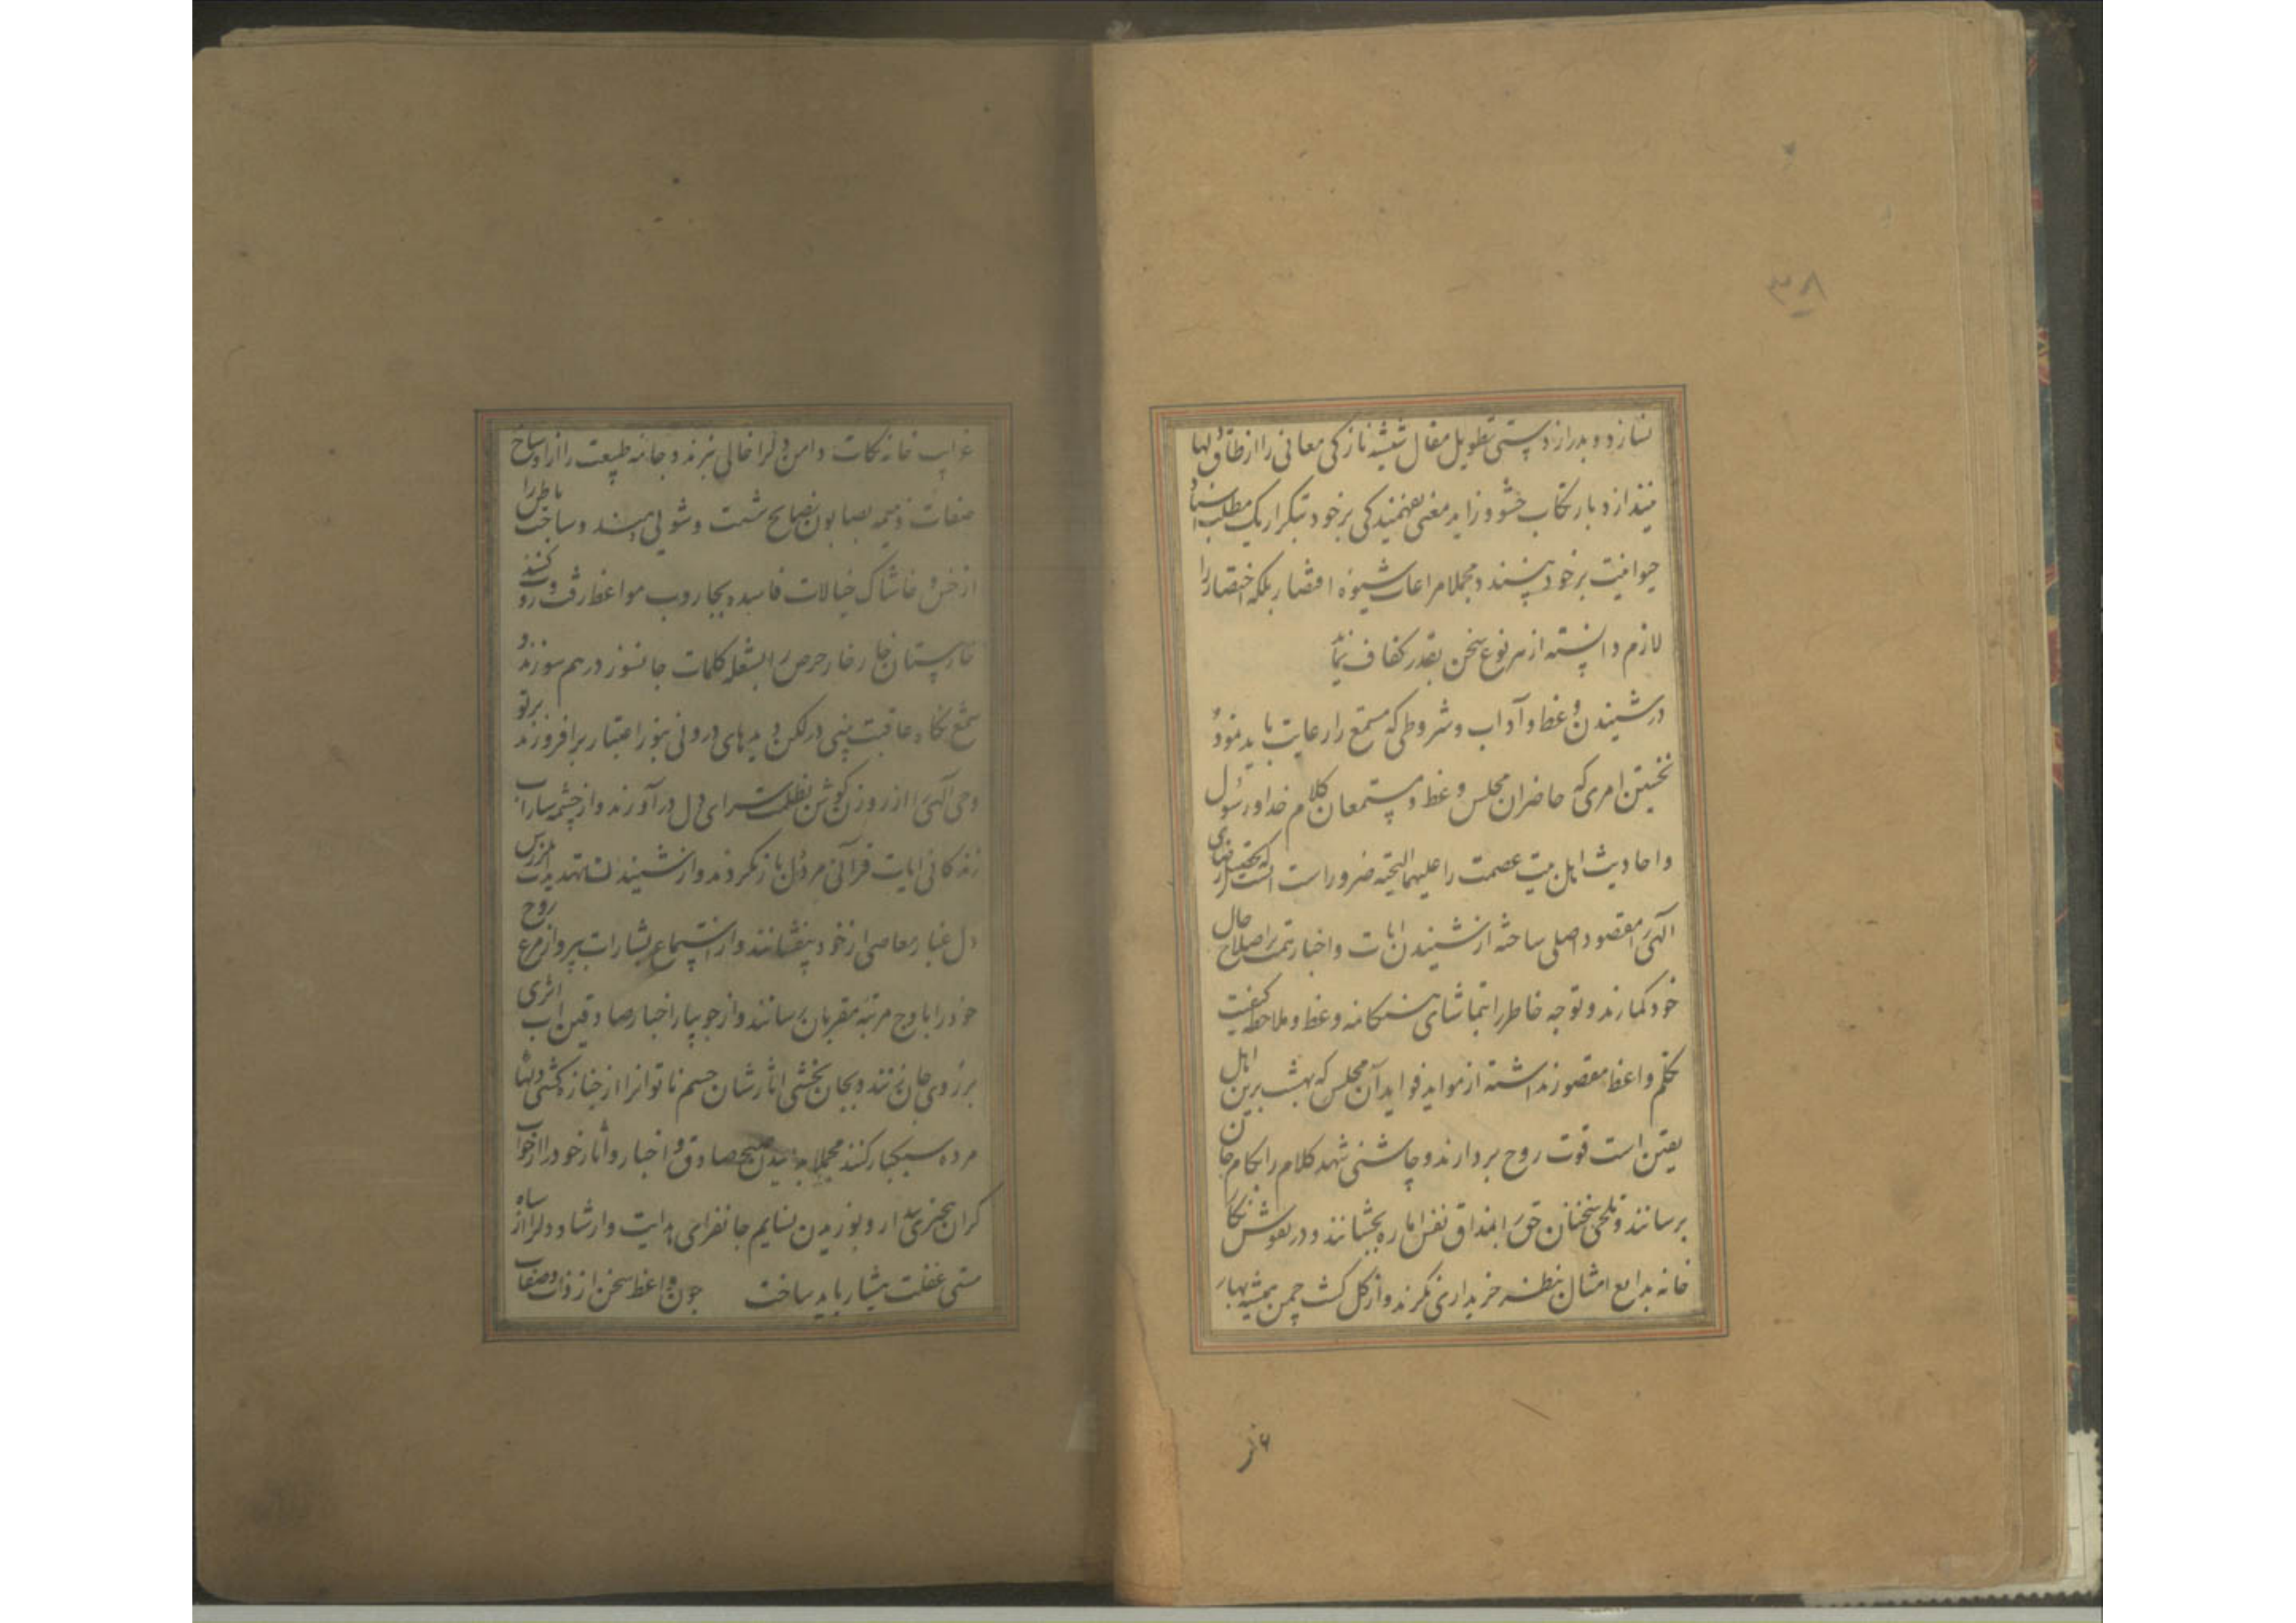 ۳۸
نسازد و بدرازدستی تطویل مقال شیشه نازکی معانی را از طاق دلها
نیندازد بارتکاب حشو و زاید معنی نفهمیدکی برخود بتکرار یک مطلب
برخود نپسندد مجملا مراعات شیوه اقتصار بلکه اختصار را
لازم دانسته از هر نوع سخن بقدر کفاف نماید
در شنیدن وعظ و آداب و شروطی که مستمع را رعایت باید نمود
نخستین امری که حاضران مجلس وعظ و مستمعان کلام خدا و رسول
و احادیث اهل بیت عصمت را علیهم التحیه ضرور است آنست که تحصیل رضای
الهی را مقصود اصلی ساخته از شنیدن ایات و اخبار همت بر اصلاح حال
خود کمارند و توجه خاطر را بتماشای هنکامه وعظ و ملاحظه کیفیت
تکلم واعظ مقصور نداشته از مواید فواید آن مجلس که بهشت برین اهل
یقین است قوت روح بردارند و چاشنی شهد کلام را بکام جان
برسانند و تلخی سخنان حق را بمذاق نفس اماره بچشانند و در نقوش نکار
خانه بدایع امثال بنظر خریداری نکرند و از کل کشت چمن همیشه بهار
غرایب خانه نکات دامن دلرا خالی نبرند و جامه طبیعت را از اوساخ
صفات ذمیمه بصابون نصایح شست و شویی دهند و ساحت باطن را
از خس و خاشاک خیالات فاسده بجاروب مواعظ رفت و روب کنند
خارستان خار خار حرص را بشعله کلمات جانسوز درهم سوزند و
شمع نکاه عاقبت بینی در لکن دیدهای درونی بنور اعتبار برافروزند پرتو
وحی آلهی را از روزن کوش بظلمت سرای دل درآورند و از چشمه سار آب
زندکانی ایات قرآنی مرده دل باز نکردند و از شنیدن تهدیدات
دل غبار معاصی از خود بیفشانند و از استماع بشارات بپرواز مرغ روح
خود را باوج مرتبه مقربان برسانند و از جویبار اخبار صادقین آب
بر روی جان زنند و بجان بخشی اثارشان جسم ناتوانرا از جنازه کشی دلهای
مرده سبکبار کنند مجملا بدمیدن صبح صادق اخبار و آثار خود را از خواب
کران بیخبری بیدار و بوزیدن نسایم جانفزای هدایت و ارشاد دلرا از سیاه
مستی غفلت هشیار باید ساخت چون واعظ سخن از ذات و صفات